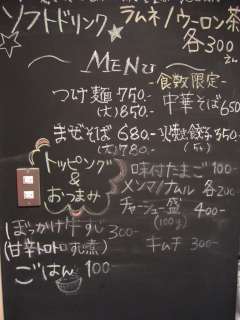 ソフトドリンク
ラムネ/ウーロン茶
各300
MENU
-食数限定-
つけ麺 750.-
(大)850.-
中華そば650
まぜそば 680-
(大)780.-
焼餃子350
(5ヶ)
トッピング
&
おつまみ
味付たまご 100-
メンマ/ナムル 各200
チャーシュー盛 400-
(100g)
ぼっかけ牛すじ 300-
(甘辛トロトロすじ煮)
キムチ 300-
ごはん 100-